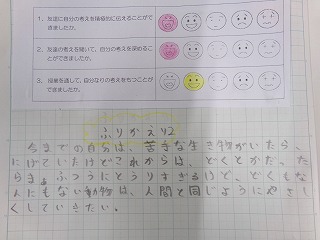 1. 友達に自分の考えを積極的に伝えることが
できましたか。
2. 友達の考えを聞いて、自分の考えを深めるこ
とができましたか。
3. 授業を通して、自分なりの考えをもつことが
できましたか。
ふりかえり2
今までの自分は、苦手な生き物がいたら、
にげていたけどこれからは、どくとかだっ
たらまぁふつうにとうりすぎるけど、どくもな
んにもない動物は、人間と同じようにやさし
くしていきたい。